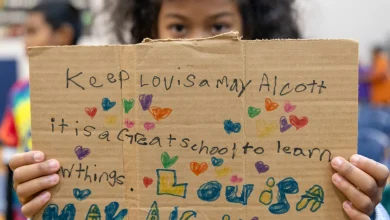 Keep Louisa may Alcott
it is a Great school to learn
n things.
Louisa
May